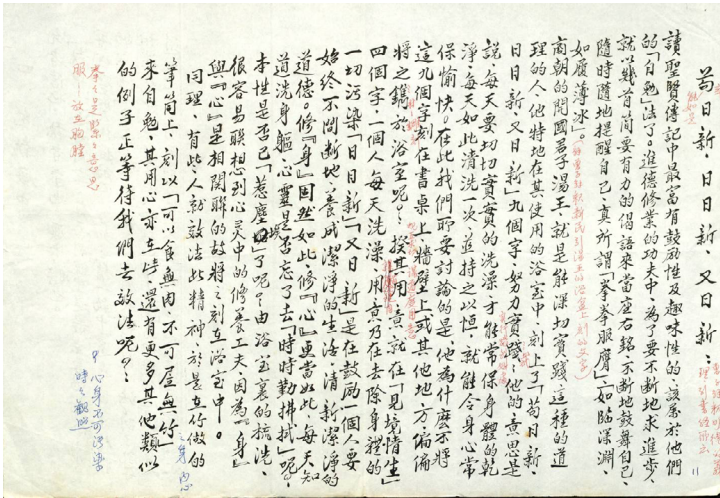 苟日新,日日新,又日新:
讀聖賢傳記中最富有鼓勵性及趣味性的,該屬於他們
的「自勉」法了。進德修業的功夫中,為了要不斷地求進步,人
就以幾首簡要有力的偈語來當座右銘,不斷地鼓舞自己,
隨時隨地提醒自己,真所謂「拳拳服膺」,如臨深淵,
如履薄冰。
商朝的開國君子湯王,就是能深切實踐這種的道
理的人,他特地在其使用的浴室中,刻上了「苟日新,
日日新,又日新」九個字,努力實踐,他的意思是
說:每天要切切實實的洗澡,才能常保身體的乾
淨,每天如此清洗一次,並持之以恒,就能令身心常
保愉快。在此我們所要討論的是,他為什麼不將
這九個字刻在書桌上、牆壁上或其他地方,偏偏
將之鐫於浴室呢?探其用意,就在「見境情生」
四個字,一個人每天洗澡,用意乃在去除身體的
一切污染,「日日新」「又日新」是在鼓勵一個人要
始終不間斷地,養成潔淨的生活,清新潔淨的
道德。修『身』固然如此,修『心』更當如此,每天知
道洗身軀,心靈是否忘了去「時時勤拂拭」呢?
本性是否已「惹塵埃」了呢?由浴室裏的梳洗,
很容易聯想到心灵中的修養工夫,因為『身』
與『心』是相關聯的,故將之刻在浴室中。
同理,有些人就效法此精神,於是在竹做的
筆筒上,刻以「可以食無肉,不可居無竹」
來自勉,其用心亦在此,還有更多其他類似
的例子正等待我們去效法呢?
拳拳是緊緊之意思
服——放在胸膛
心身不可污染
時時觀照
11